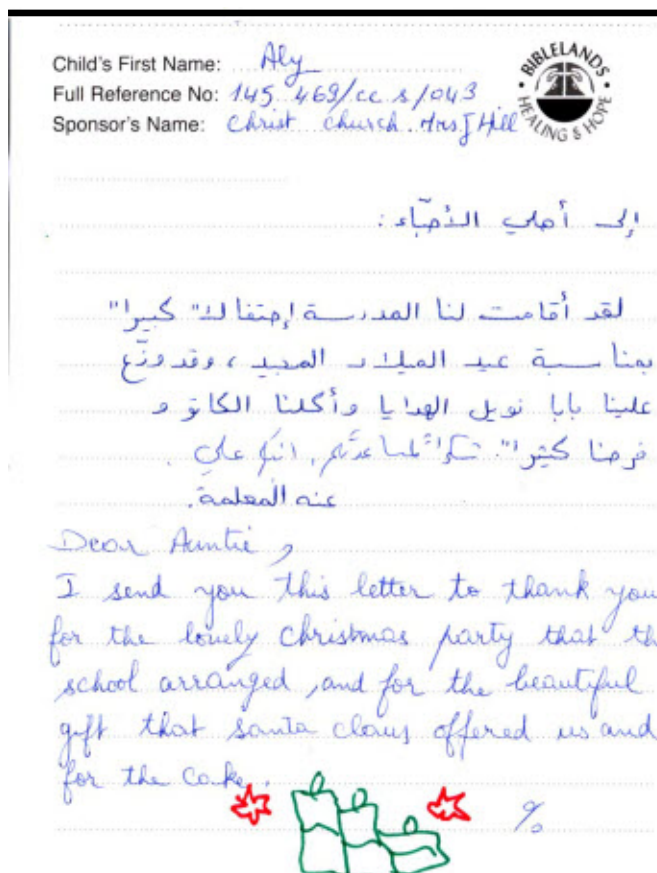 Child's First Name: Aly
Full Reference No: 145 469/cc s/043
Sponsor's Name: Christ church. Mrs J Hill
BIBLELANDS
HEALING & HOPE
إلى أهلي الأحبّاء:
لقد أقامت لنا المدرسة إحتفالا" كبيرا"
بمناسبة عيد الميلاد المجيد، وقد وزّع
علينا بابا نويل الهدايا وأكلنا الكاتو و
فرحنا كثيرا". شكرا لمساعدتكم. ابنكم علي.
عنه المعلمة.
Dear Auntie,
I send you this letter to thank you
for the lovely christmas party that th
school arranged, and for the beautiful
gift that santa claus offered us and
for the cake.
%